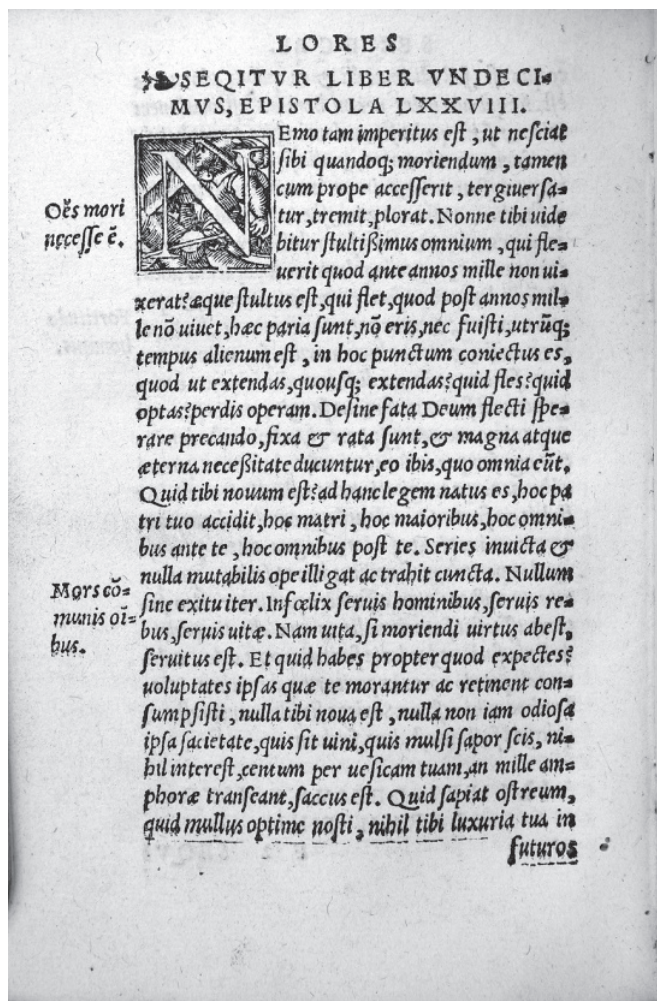 LORES
SEQITVR LIBER VNDECI-
MVS, EPISTOLA LXXVIII.
NEmo tam imperitus est, ut nesciat
sibi quandoq; moriendum, tamen
cum prope accesserit, tergiuersa-
tur, tremit, plorat. Nonne tibi uide
bitur stultißimus omnium, qui fle-
uerit quod ante annos mille non ui-
xerat? æque stultus est, qui flet, quod post annos mil-
le nõ uiuet, hæc paria sunt, nõ eris, nec fuisti, utrũq;
tempus alienum est, in hoc punctum coniectus es,
quod ut extendas, quousq; extendas? quid fles? quid
optas? perdis operam. Desine fata Deum flecti spe-
rare precando, fixa & rata sunt, & magna atque
æterna neceßitate ducuntur, eo ibis, quo omnia eũt.
Quid tibi nouum est? ad hanc legem natus es, hoc pa
tri tuo accidit, hoc matri, hoc maioribus, hoc omni-
bus ante te, hoc omnibus post te. Series inuicta &
nulla mutabilis ope illigat ac trahit cuncta. Nullum
sine exitu iter. Infœlix seruis hominibus, seruis re-
bus, seruis uitæ. Nam uita, si moriendi virtus abest,
seruitus est. Et quid habes propter quod expectes?
voluptates ipsas quæ te morantur ac retinent con-
sumpsisti, nulla tibi noua est, nulla non iam odiosa
ipsa sacietate, quis sit uini, quis mulsi sapor scis, ni-
hil interest, centum per uesicam tuam, an mille am-
phoræ transeant, saccus est. Quid sapiat ostreum,
quid mullus optime nosti, nihil tibi luxuria tua in
futuros
Oẽs mori
necesse ẽ.
Mors cõ-
munis oĩ-
bus.